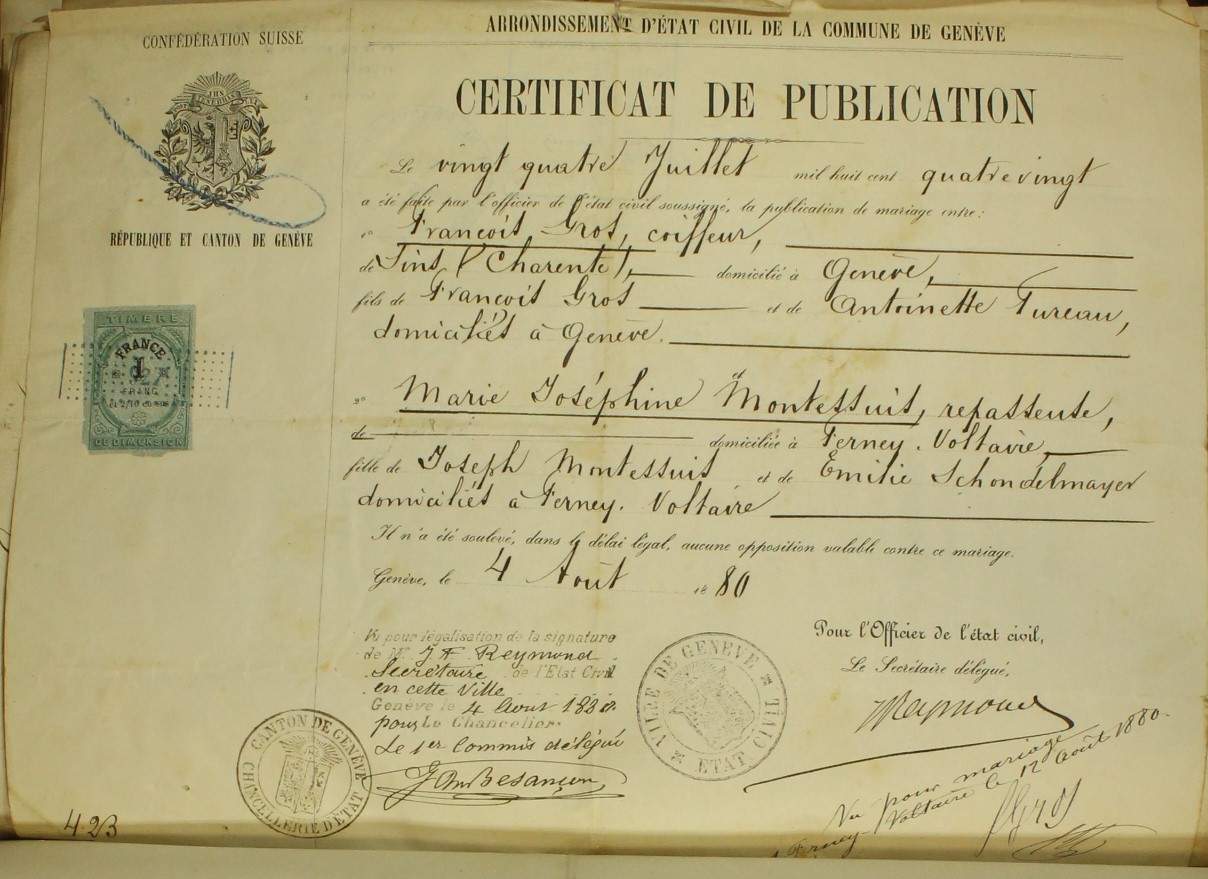 CONFÉDÉRATION SUISSE
RÉPUBLIQUE ET CANTON DE GENÈVE
TIMBRE
FRANCE
1
FRANC
DE DIMENSION
ARRONDISSEMENT D'ÉTAT CIVIL DE LA COMMUNE DE GENÈVE
CERTIFICAT DE PUBLICATION
Le vingt quatre Juillet mil huit cent quatrevingt
a été faite par l'officier de l'état civil soussigné, la publication de mariage entre:
1° François Gros, coiffeur,
de Sins (Charente), domicilié à Genève,
fils de François Gros et de Antoinette Fureau,
domiciliés à Genève.
2° Marie Joséphine Montessuit, repasseuse,
de domiciliée à Ferney-Voltaire,
fille de Joseph Montessuit et de Emilie Schondelmayer
domiciliés à Ferney-Voltaire
Il n'a été soulevé, dans le délai légal, aucune opposition valable contre ce mariage.
Genève, le 4 Août 1880
Pour l'Officier de l'état civil,
Le Secrétaire délégué,
JReymond
Vu pour légalisation de la signature
de Mr J F Reymond
Secrétaire de l'Etat Civil
en cette Ville
Genève le 4 Août 1880
pour Le Chancelier
Le 1er Commis délégué
Besançon
CANTON DE GENÈVE
CHANCELLERIE D'ÉTAT
VILLE DE GENÈVE
ETAT CIVIL
Vu pour mariage
Ferney-Voltaire le 12 août 1880.
423